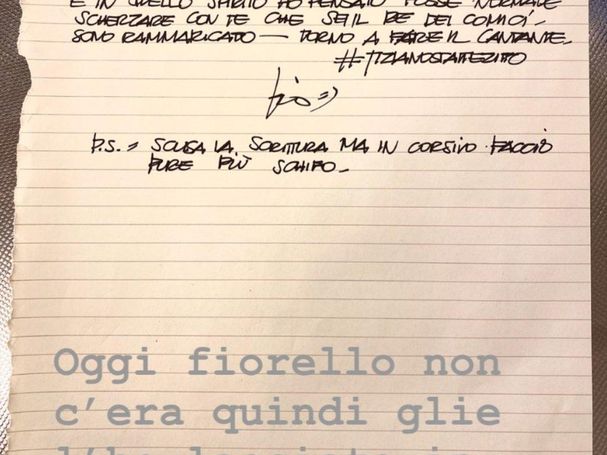 E IN QUELLO SPIRITO HO PENSATO FOSSE NORMALE
SCHERZARE CON TE CHE SEI IL RE DEI COMICI.
SONO RAMMARICATO — TORNO A FARE IL CANTANTE.
#TIZIANOSTATTEZITO
P.S. = SCUSA LA SCRITTURA MA IN CORSIVO FACCIO
PURE PIÙ SCHIFO.
Oggi fiorello non
c'era quindi glie
l'ho lasciata in